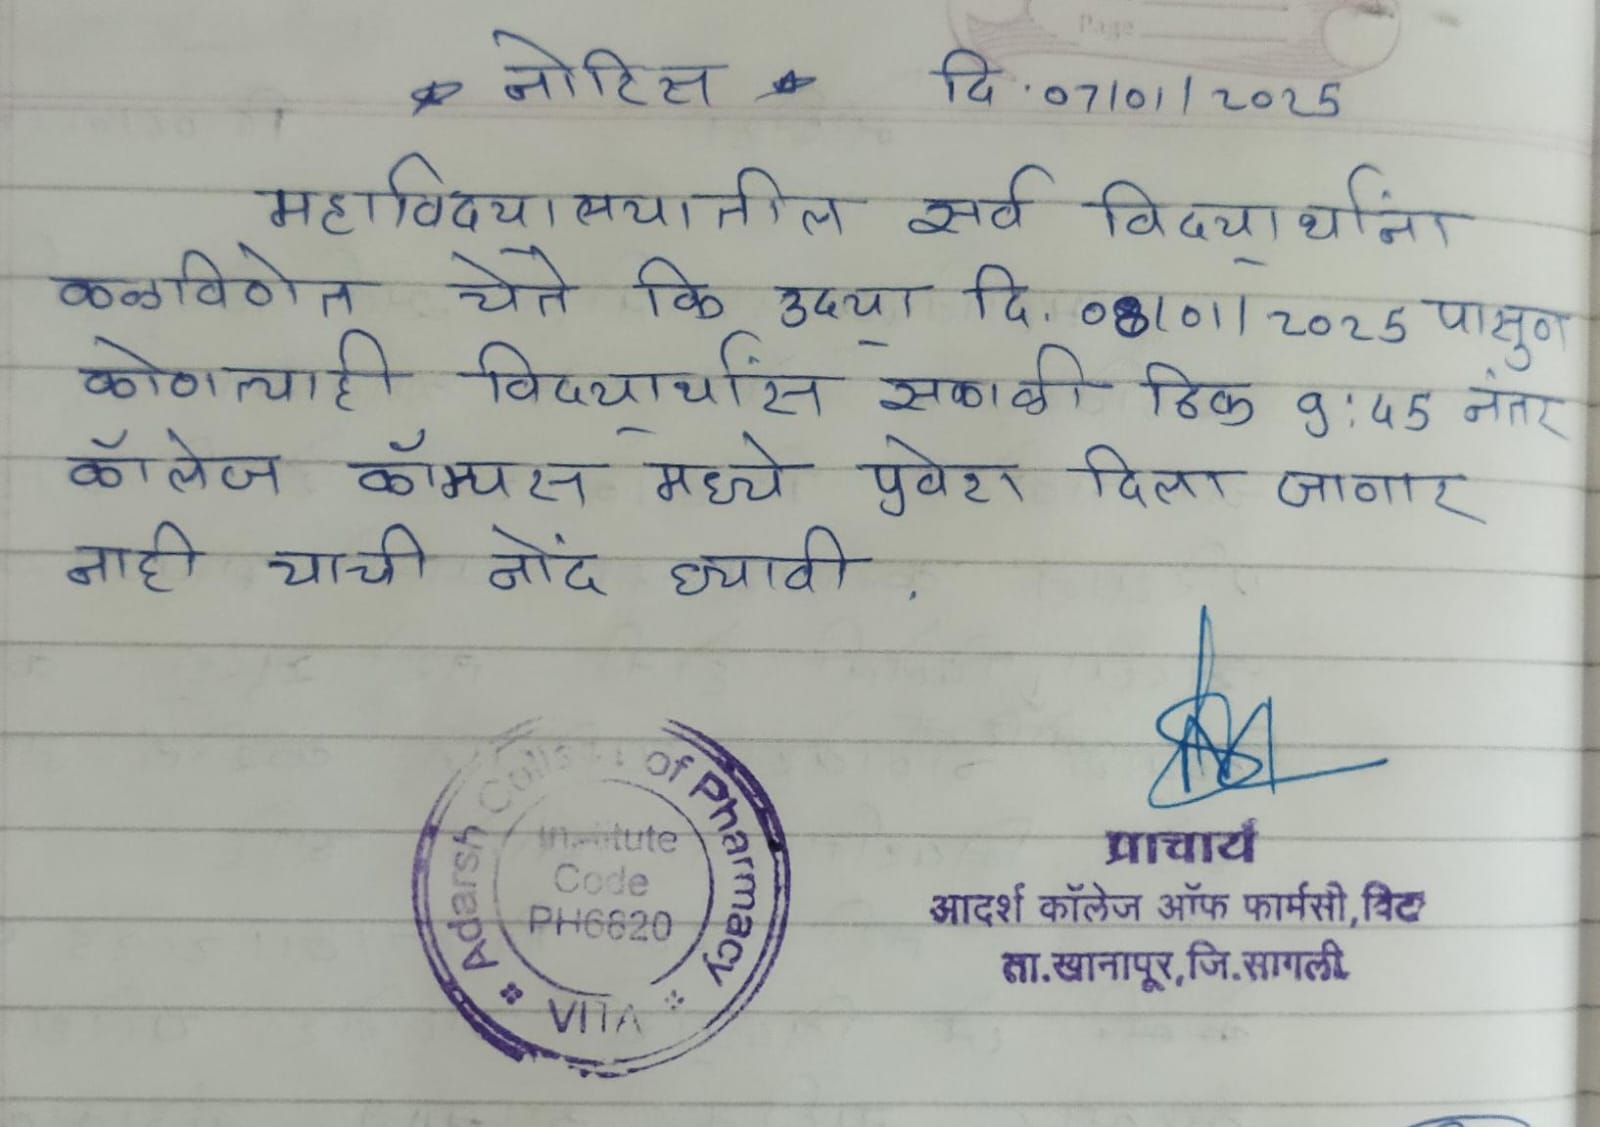 Page
* नोटिस * दि. 07/01/2025
महाविदयालयातील सर्व विदयार्थांना
कळविणेत येते कि उदया दि. 08/01/2025 पासुन
कोणत्याही विदयार्थांस सकाळी ठिक 9:45 नंतर
कॉलेज कॅम्पस मध्ये प्रवेश दिला जाणार
नाही याची नोंद घ्यावी.
Adarsh College of Pharmacy
Institute
Code
PH6820
VITA
प्राचार्य
आदर्श कॉलेज ऑफ फार्मसी, विटा
ता.खानापूर,जि.सागली